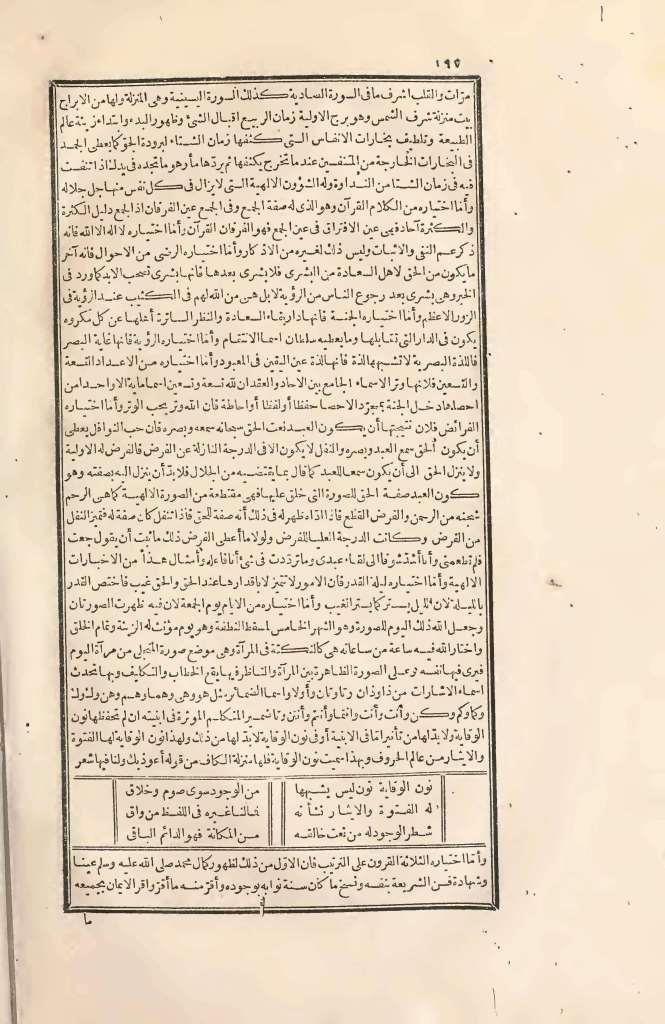 ١٩٧
مرّات والقلب اشرف ما فى السورة الصادية كذلك السورة اليسينية وهى المنزلة ولها من الابراج
بيت منزلة شرف الشمس وهو برج الاولية زمان الربيع اقبال الشئ وظهور البدء وابتداء زينة عالم
الطبيعة وتلطيف بخارات الانفاس التى كثفها زمان الشتاء لبرودة الجوّ كما يعطى الجمد
فى البخارات الخارجة من المتنفسين عندما تخرج يكثفها ثم يردّها ماء وهو ما تجده فى يدك اذا تنفست
فيه فى زمان الشتا من النداوة وله الشؤون الالهية التى لا يزال فى كل نفس منها جل جلاله
وأمّا اختياره من الكلام القرآن وهو الذى له صفة الجمع وفى الجمع عين الفرقان اذ الجمع دليل الكثرة
والكثرة آحاد فهى عين الافتراق فى عين الجمع فهو الفرقان القرآن وأمّا اختياره لا اله الا الله فانه
ذكر عم النفى والاثبات وليس ذلك لغيره من الاذكار وأمّا اختياره الرضى من الاحوال فانه آخر
ما يكون من الحق لاهل السعادة من البشرى فلا بشرى بعدها فانها بشرى تصحب الابد كما ورد فى
الخبر وهى بشرى بعد رجوع الناس من الرؤية لا بل هى من الله لهم فى الكثيب عند الرؤية فى
الزور الاعظم وأمّا اختياره الجنة فانها دار بقاء السعادة والنظر الساترة أهلها عن كل مكروه
يكون فى الدار التى تقابلها وما يعطيه سلطان اسما الانتقام وأمّا اختياره الرؤية فانها غاية البصر
فاللذة البصرية لا تشبهها لذة فانها لذة عين اليقين فى المعبود وأمّا اختياره من الاعداد التسعة
والتسعين فلانها وتر الاسماء الجامع بين الآحاد والعقد ان لله تسعة وتسعين اسما ماية الا واحد من
احصاها دخل الجنة بمجرّد الاحصا حفظا أو لفظا أو احاطة فان الله وتر يحب الوتر وأمّا اختياره
الفرائض فلان نتيجتها أن يكون العبد نعت الحق سبحانه سمعه وبصره فان حب النوافل يعطى
أن يكون الحق سمع العبد وبصره والنفل لا يكون الا فى الدرجة النازلة عن الفرض فالفرض له الاولية
ولا ينزل الحق الى أن يكون سمعا للعبد كما قال بما يقتضيه من الجلال فلا بدّ أن ينزل اليه بصفته وهو
كون العبد صفة الحق للصورة التى خلق عليها فهى مقتطعة من الصورة الالهية كما هى الرحم
شجنه من الرحمن والفرض القطع فاذا اداه ظهر له فى ذلك أنه صفة للحق فاذا تنفل كان صفة له فتميز النفل
من الفرض وكانت الدرجة العليا للفرض ولولا ما أعطى الفرض ذلك ما ثبت أن يقول جعت
فلم تطعمنى وأنا أشدّ شوقا الى لقاء عبدى وما تردّدت فى شئ أنا فاعله وأمثال هذا من الاخبارات
الالهية وأمّا اختياره ليلة القدر فان الامور لا تتميز الا باقدارها عند الحق والحق غيب فاختص القدر
بالليلة لان الليل يستر كما يستر الغيب وأمّا اختياره من الايام يوم الجمعة لان فيه ظهرت الصورتان
وجعل الله ذلك اليوم للصورة وهو الشهر الخامس لمسقط النطفة وهو يوم مؤنث له الزينة وتمام الخلق
واختار الله فيه ساعة من ساعاته هى كالنكتة فى المرآة وهى موضع صورة المتجلى من مرآة اليوم
فيرى فيها نفسه وعلى الصورة الظاهرة بين المرآة والناظر فيها يقع الخطاب والتكليف وبها تحدث
اسماء الاشارات من ذا وذان وتا وتان وأولا واسما الضمائر مثل هو وهى وهما وهم وهن ولك ولك
وكما وكم وكن وأنت وأنت وأنتما وأنتم وأنتن وتا ضمير المتكلم المؤثرة فى ابنيته ان لم تحفظها نون
الوقاية ولا بدّ لها من تأثير امّا فى الابنية أو فى نون الوقاية لا بدّ لها من ذلك ولهذا نون الوقاية لها الفتوة
والايثار من عالم الحروف وبهذا سميت نون الوقاية فلها منزلة الكاف من قوله أعوذ بك ولنا فيها شعر
نون الوقاية نون ليس يشبهها من الوجود سوى صوم وخلاق
له الفتوة والايثار نشأته فمالنا غيره فى اللفظ من واق
شطر الوجود له من نعت خالقه من المكانة فهو الدائم الباقى
وأمّا اختياره الثلاثة القرون على الترتيب فان الاوّل من ذلك لظهور كمال محمد صلى الله عليه وسلم عينا
وشهادة فسن الشريعة بنفسه ونسخ ما كان سنة نوّابه بوجوده وأقرّ منه ما أقرّ واقر الايمان بجميعه
ما